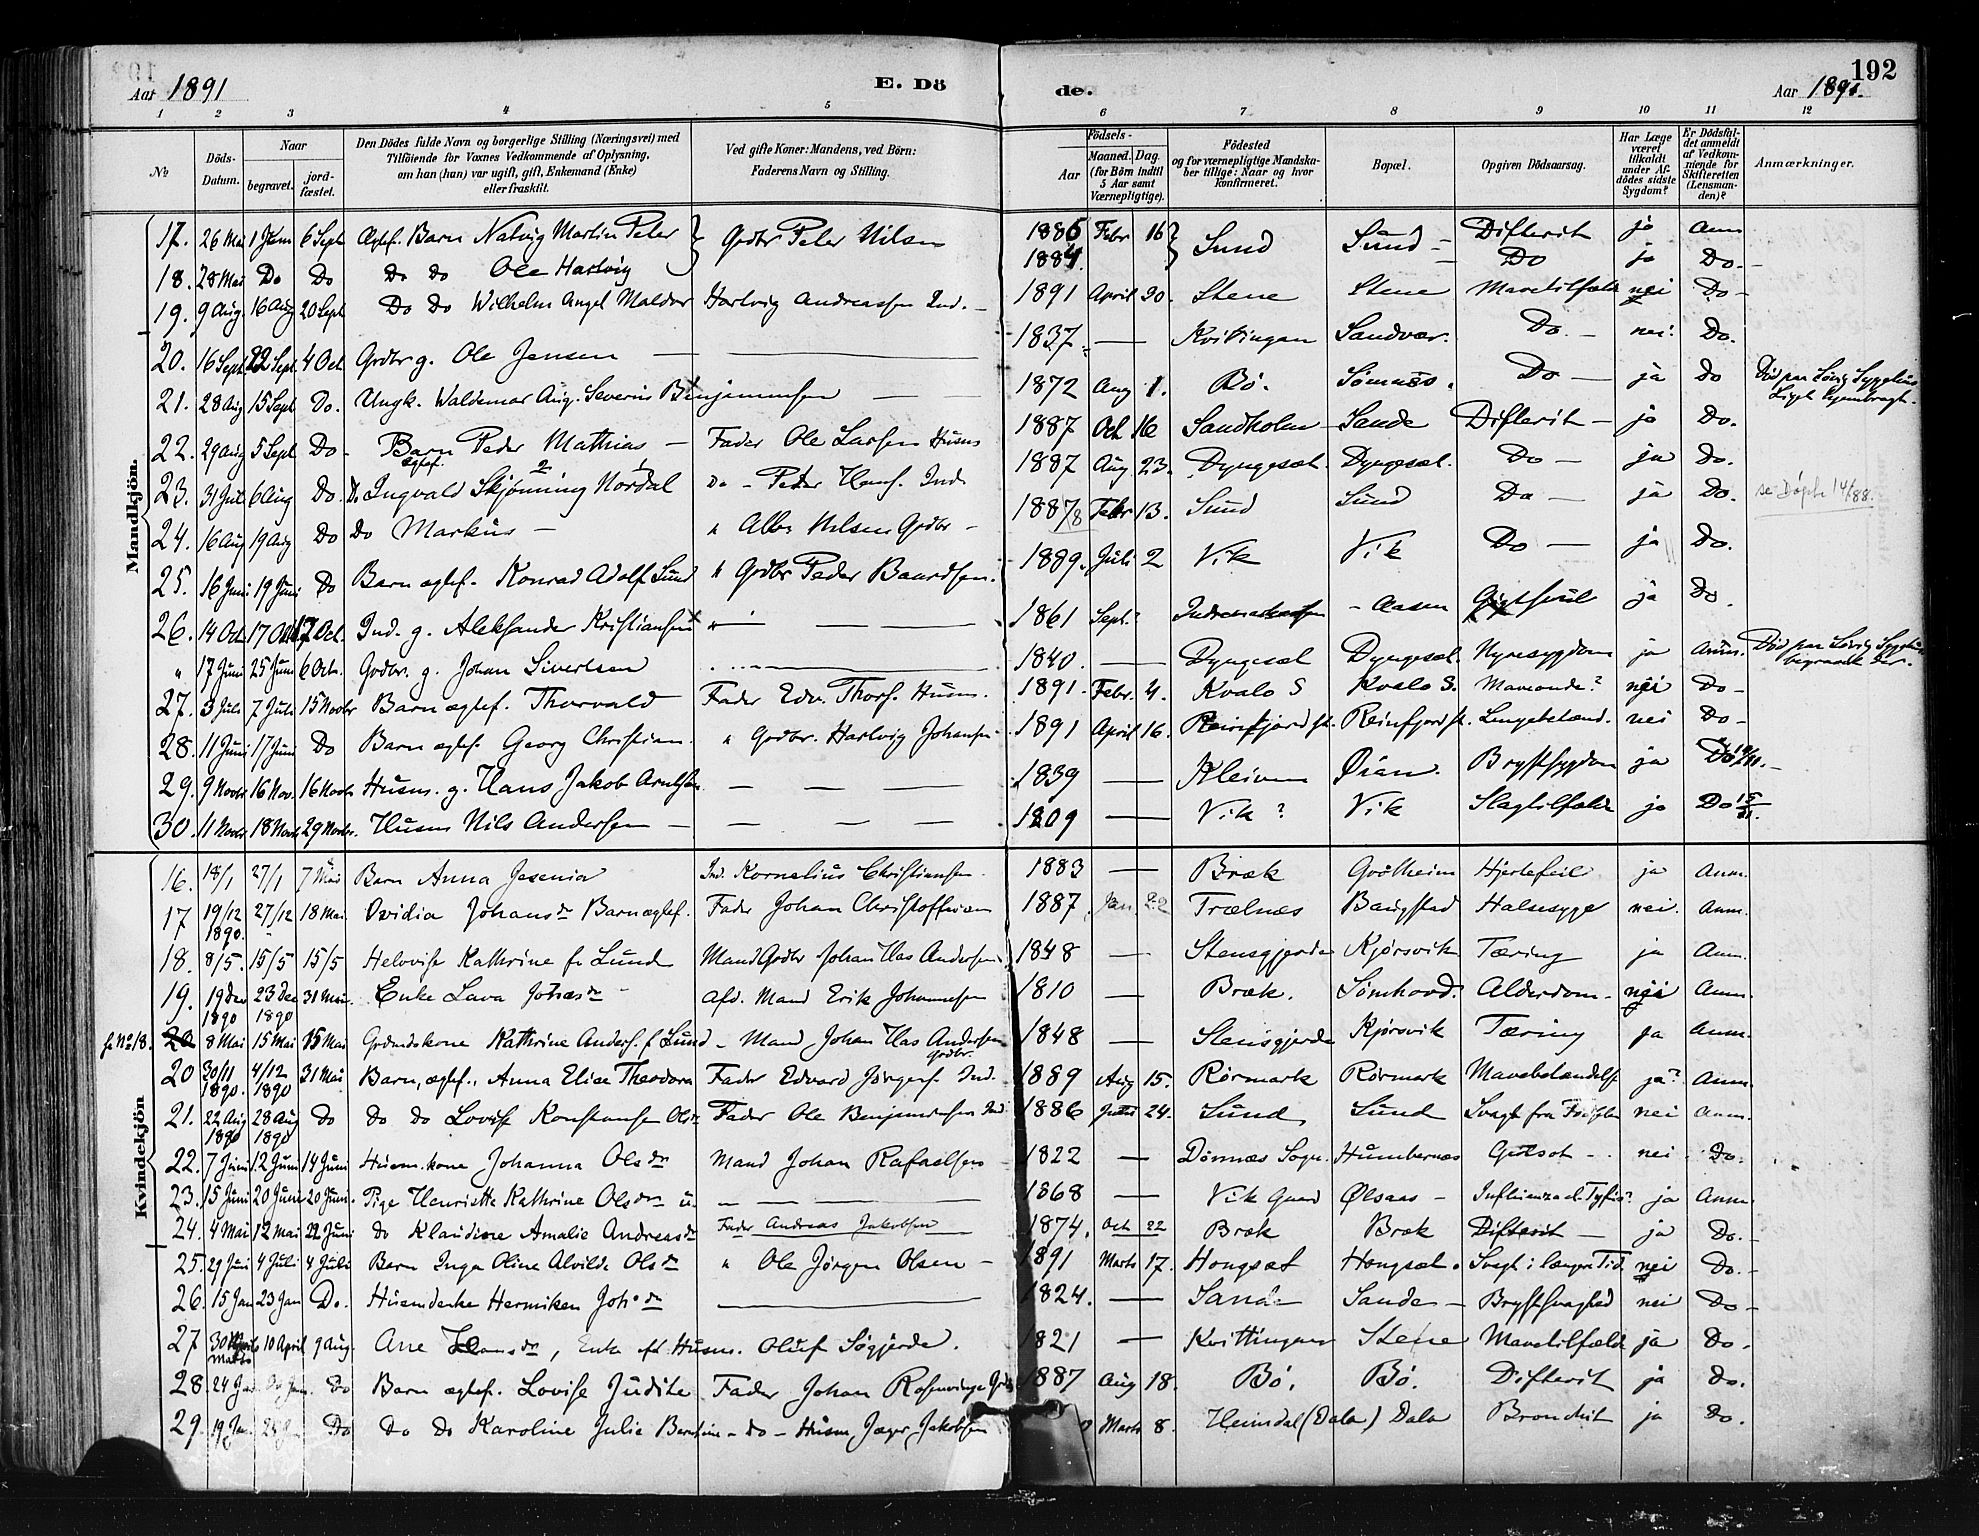 192
Aar 1891 E. Dö de. Aar 1891.
1 2 3 4 5 6 7 8 9 10 11 12
№ Döds-Datum. Naar begravet. jord-fæstet. Den Dödes fulde Navn og borgerlige Stilling (Næringsvei) med Tilföiende for Voxnes Vedkommende af Oplysning, om han (hun) var ugift, gift, Enkemand (Enke) eller fraskilt. Ved gifte Koner: Mandens, ved Börn: Faderens Navn og Stilling. Födsels- Aar Maaned. Dag. (for Börn indtil 5 Aar samt Værnepligtige). Födested og for værnepligtige Mandska-ber tillige: Naar og hvor konfirmeret. Bopæl. Opgiven Dödsaarsag. Har Læge været tilkaldt under Af-dödes sidste Sygdom? Er Dödsfal-det anmeldt af Vedkom-mende for Skifteretten (Lensman-den)? Anmærkninger.
Mandkjön.
17. 26 Mai 1 Juni 6 Sept Ægtef. Barn Natvig Martin Peter Grdbr Peter Nilsen 1886 Febr 16 Sund Sund Difterit ja Anm
18. 28 Mai Do Do Do Do Ole Hartvig 1884 Do ja Do.
19. 9 Aug. 16 Aug 20 Sept Do Do Wilhelm Angel Maldor Hartvig Andreassen Ind. 1891 April 30. Stene Stene Mavetilfælde nei Do
20. 16 Sept 22 Sept. 4 Oct. Grdbr g. Ole Jensen 1837. Kvitingen Sandvær. Do. nei. Do.
21. 28 Aug 15 Sept Do. Ungk. Waldemar Aug. Severin Benjaminsen 1872 Aug 1. Bø. Sømnæs. Do ja Do Död paa Løvig Sygehus
22. 29 Aug 5 Sept Do Barn Peder Mathias Fader Ole Larsen Husm 1887 Oct 16 Sandholm Sande Difterit ja Do.
ægtef.
23. 31 Jul 6 Aug Do. Do Ingvald Skjønning Nördal Do Peder Hans. Ind. 1887 Aug 23. Dyngesæt Dyngesæt. Do ja Do.
24. 16 Aug 19 Aug Do Do Markus " Albr Nilsen Grdbr 1887/8 Febr 13. Sund Sund Do ja Do. se Döpte 14/88.
25. 16 Juni 19 Juni Do Barn ægtef. Konrad Adolf Lund " Grdbr Peder Baardsen. 1889. Juli 2 Vik Vik Do ja Do.
26. 14 Oct 17 Oct 17 Oct. Ind. g. Aleksander Kristiansen 1861 Sept. Aasen ja Do.
" 17 Juni 25 Juni 6 Oct. Grdbr. g. Johan Sivertsen 1840. Dyngesæt Dyngesæt. Nyresygdom ja Anm. Död paa Løvig Sygehus begravet der.
27. 3 Juli 7 Juli 15 Novbr Barn ægtef. Thorvald Fader Edv. Thors. Husm. 1891. Febr. 4. Kvalø S Kvalø S. Maveonde? nei Do
28. 11 Juni 17 Juni Do Barn ægtef. Georg Christian " Grdbr. Hartvig Johansen 1891 April 16. Reinfjord st. Reinfjord st. Lungebetænd. nei Do
29. 9 Novbr 16 Nov. 16 Novbr Husm. g. Hans Jakob Arntsen 1839 Kleiven Øian. Brystsygdom ja Do
30. 11 Novbr 18 Novb 29 Novbr. Husm Nils Andersen 1809 Vik? Vik Slagtilfælde ja Do
Kvindekjön
16. 18/1 27/1 7 Mai Barn Anna Jesenia Ind. Kornelius Christiansen. 1883 Bræk Hjertefeil ja Anm.
17 19/12 1890. 27/12 18 Mai Ovidia Johansdr Barn ægtef. Fader Johan Christoffersen 1887 Jan. 22 Trælnæs Baugstad Halsesyge nei. Anm.
18. 8/5. 15/5 15/5 Helovise Kathrine f. Lund Mand Grdbr Johan Elias Andersen 1848 Stensgjerde Kjørsvik Tæring ja Anm.
19. 19 Dec 1890 23 Dec 1890 31 Mai Enke Lava Johasdr afd. Mand Erik Johannesen 1810 Bræk. Sømhovd. Alderdom. nei Anm.
se No 18. 20 8 Mai 15 Mai 15 Mai Grdmdskone Kathrine Anders. f. Lund Mand Johan Elias Andersen grdbr. 1848 Stensgjerde Kjørsvik Tæring ja Anm.
20 30/11 1890. 4/12 1890 31 Mai Barn, ægtef., Anna Elise Theodora Fader Edvard Jørgens. Ind. 1889 Aug 15. Rörmark Rörmark Mavebetændelse ja? Anm.
21. 22 Aug 1890 28 Aug 1890 Do Do Do Lovise Konstanse Olsdr Fader Ole Benjaminsen Ind 1886 24. Sund Sund Svagt fra Fødselen nei Anm.
22. 7 Juni 12 Juni 14 Juni Husm.kone Johanna Olsdr Mand Johan Rafaelsen 1822 Dönnæs Sogn. Humbernæs Gulsot nei Do.
23. 15 Juni 20 Juni 20 Juni. Pige Henriette Kathrine Olsdr u. 1868 Vik Gaard Ølsaas Influenza el. Tyfus? ja Anm
24. 4 Mai 12 Mai 22 Juni Do Klaudine Amalie Andreasdr Fader Andreas Jakobsen 1874. Oct 22 Bræk Bræk Difterit ja Do.
25. 29 Juni 4 Juli 4 Juli Barn Inga Oline Alvilde Olsdr " Ole Jørgen Olsen 1891 Marts 17. Hongsæt Hongsæt. Svagt i længere Tid nei Do.
26. 15 Jan 23 Jan Do. Husmdenke Herniken Johsdr 1824. Sande Sande Brystsvaghed nei Do
27 30 Marts 10 April 9 Aug. Ane Hansdr, Enke eft. Husm. Oluf Søgjerde. 1821 Kvittingen Stene Mavetilfælde ja Do.
28 24 Jan Do Barn ægtef. Lovise Judite Fader Johan Rosenvinge 1887 Aug 18. Bø. Bø. Difterit ja Do.
29. 19 Jan. 28 J Do Do Do Karoline Julie Bentine Do Husm, Jæger Jakobsen Marts 8. Heimdal (Dala) Dala Bronchit ja Do.